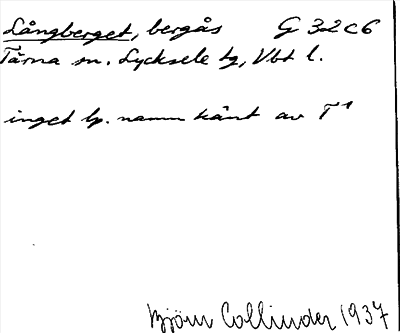 Långberget, bergås G 32 c 6
Tärna sn. Lycksele tg, Vbt l.
inget lp. namn känt av T¹
Björn Collinder 1937